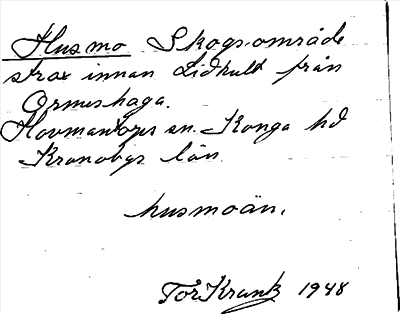 Husmo Skogsområde
strax innan Lidhult från
Ormeshaga.
Hovmantorps sn. Konga hd
Kronobgs län
husmoän.
Tor Krank 1948